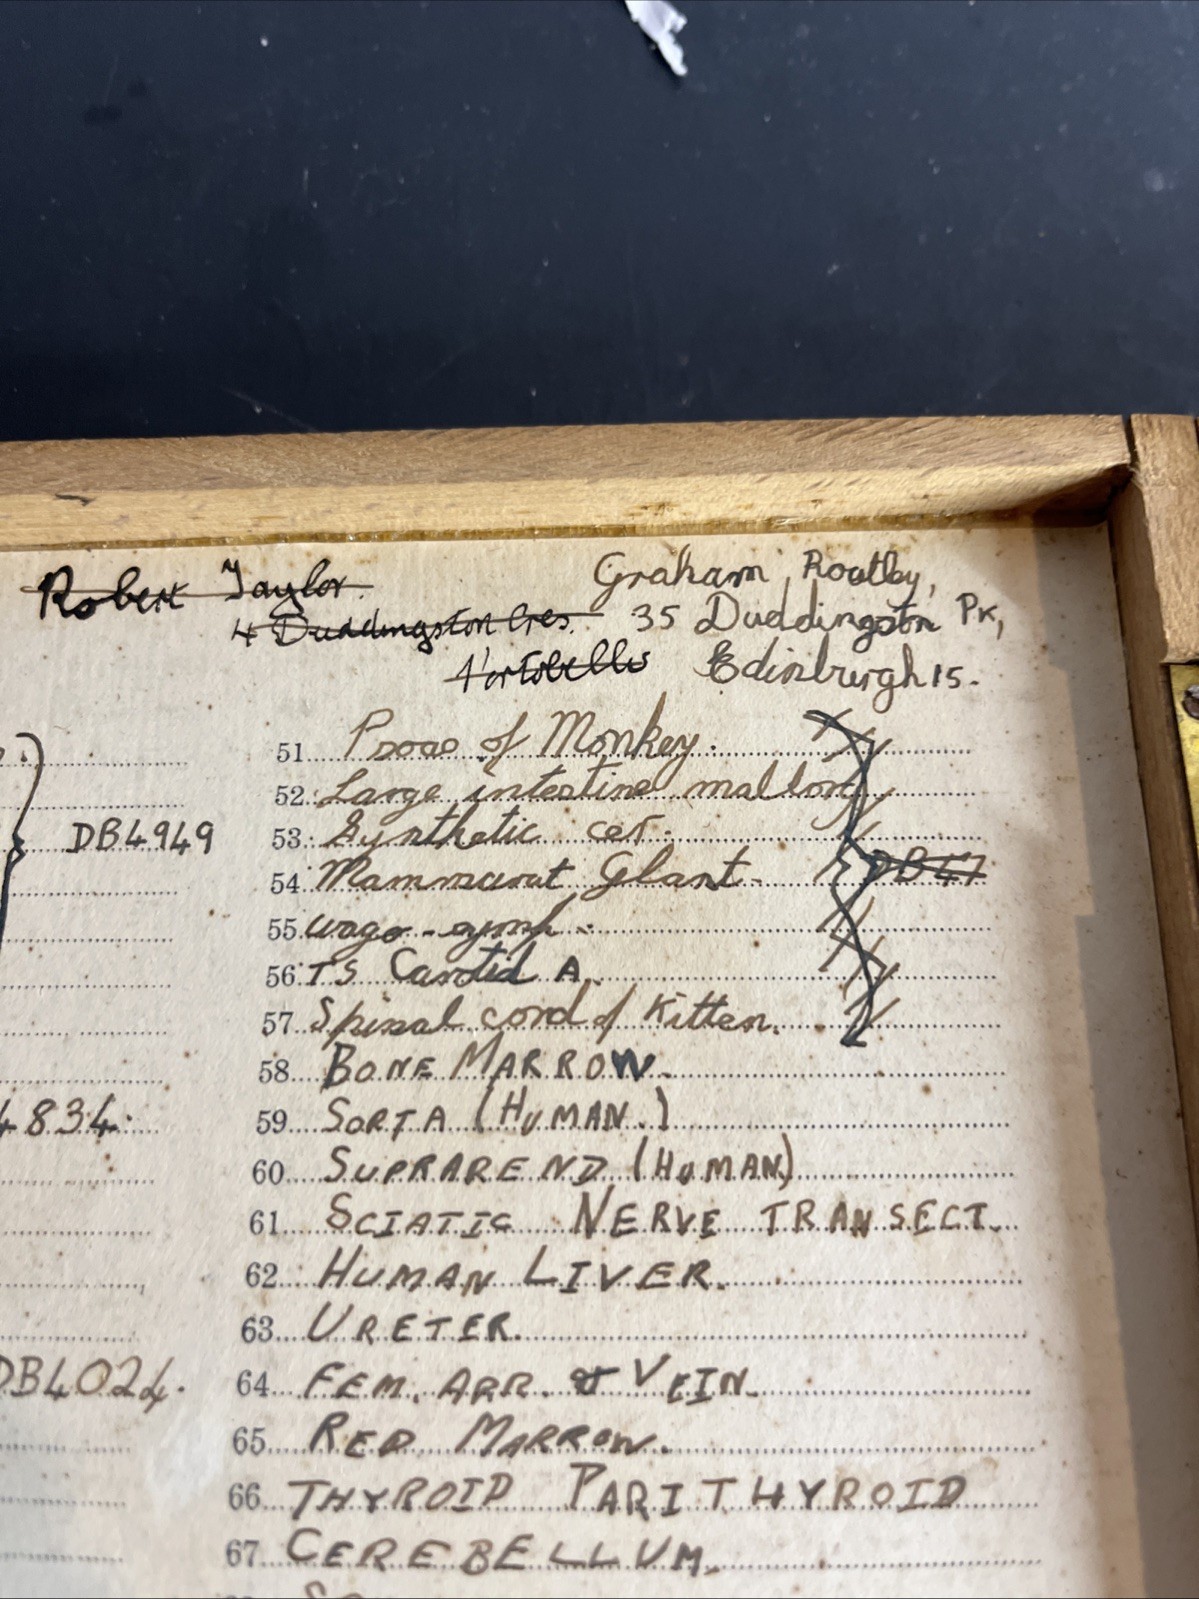 Robert Taylor.
4 Duddingston Cres.
Portobello
Graham Routley,
35 Duddingston Pk,
Edinburgh 15.
DB4949
4834.
DB4024.
51 of Monkey.
52 Large intestine
53 Synthetic
54
55
56 TS Carotid A.
57 Spinal cord of Kitten.
58 BONE MARROW.
59 SORTA (HUMAN.)
60 SUPRAREND (HUMAN)
61 SCIATIC NERVE TRANSECT.
62 HUMAN LIVER.
63 URETER.
64 FEM. ARR. & VEIN.
65 RED MARROW.
66 THYROID PARITHYROID
67 CEREBELLUM.